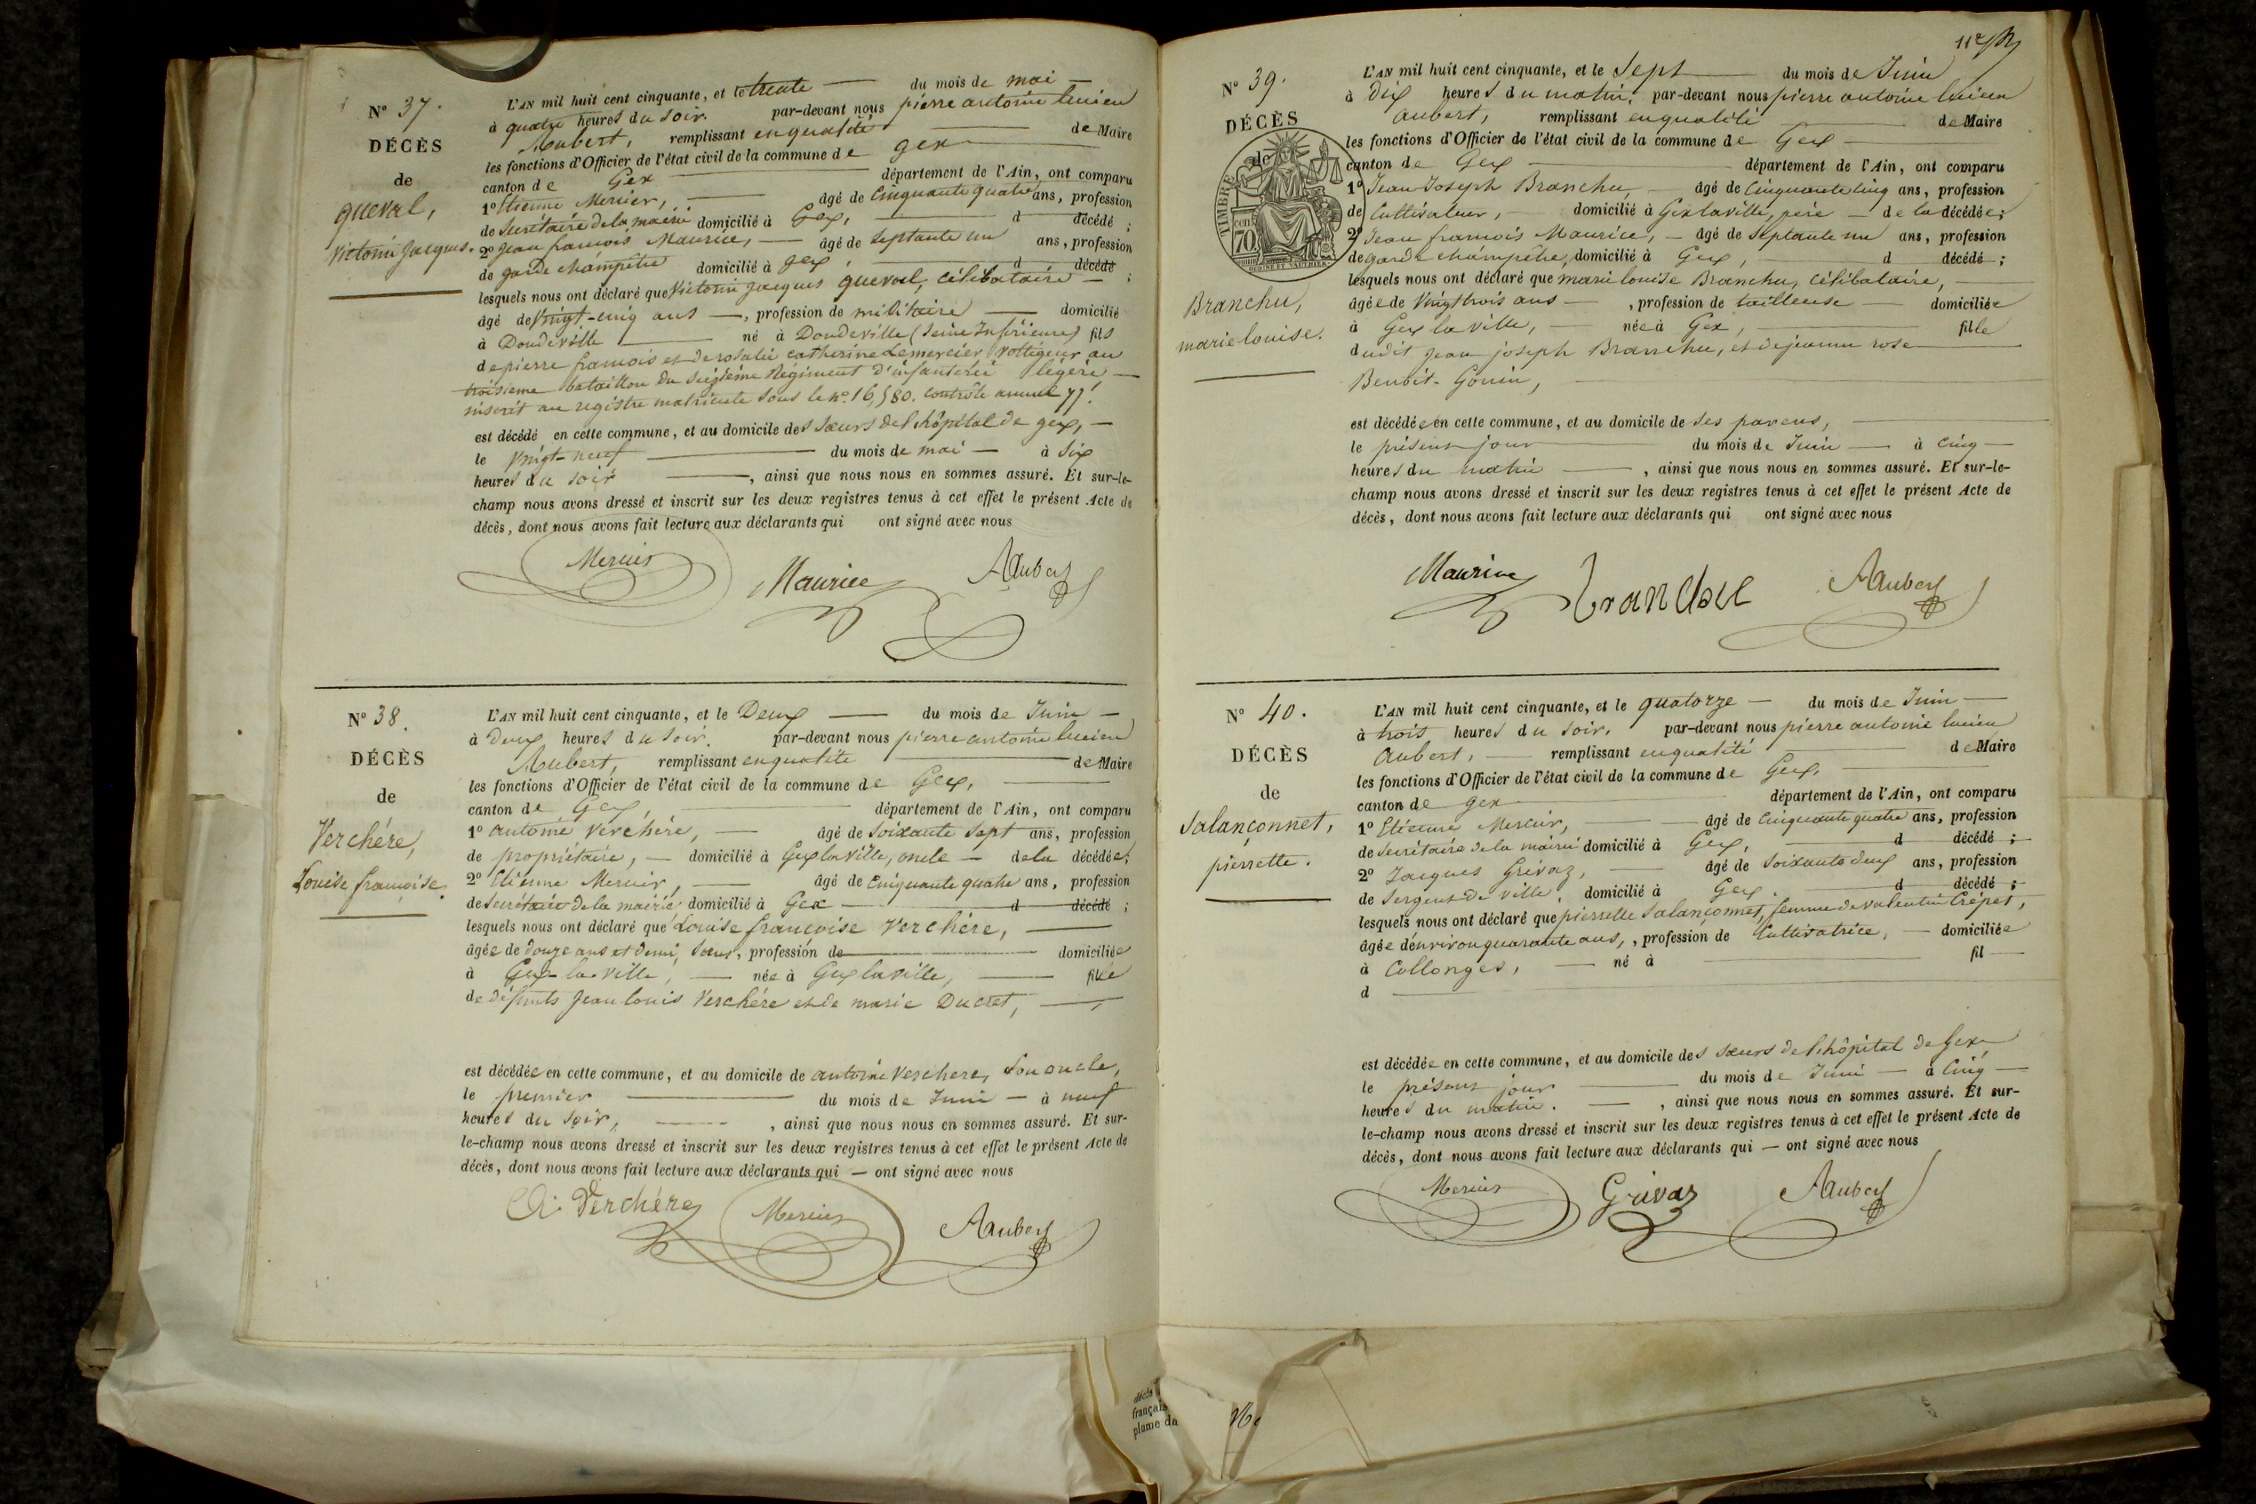 N° 37.
DÉCÈS
de
queval,
Victorin Jacques.
L'AN mil huit cent cinquante, et le trente du mois de mai
à quatre heures du soir. par-devant nous pierre antoine lucien
Aubert, remplissant en qualité de Maire
les fonctions d'Officier de l'état civil de la commune de gex
canton de Gex département de l'Ain, ont comparu
1° Etienne Mercier, âgé de Cinquante quatre ans, profession
de Secrétaire de la mairie domicilié à Gex, d décédé ;
2° Jean françois Maurice, âgé de Septante un ans, profession
de garde champêtre domicilié à gex, d décédé ;
lesquels nous ont déclaré que Victorin Jacques queval, célibataire
âgé de Vingt-cinq ans, profession de militaire domicilié
à Doudeville né à Doudeville (Seine Inférieure) fils
de pierre françois et de rosalie catherine Lemercier, voltigeur au
troisieme bataillon du Seizième Régiment d'infanterie légère
inscrit au registre matricule sous le n° 16,580. Contrôle annuel 77.
est décédé en cette commune, et au domicile des Sœurs de l'hôpital de gex,
le Vingt-neuf du mois de mai à Six
heures du soir, ainsi que nous nous en sommes assuré. Et sur-le-
champ nous avons dressé et inscrit sur les deux registres tenus à cet effet le présent Acte de
décès, dont nous avons fait lecture aux déclarants qui ont signé avec nous
Mercier Maurice AAubert
N° 38.
DÉCÈS
de
Verchère,
Louise françoise.
L'AN mil huit cent cinquante, et le Deux du mois de Juin
à deux heures du soir. par-devant nous pierre antoine lucien
Aubert, remplissant en qualité de Maire
les fonctions d'Officier de l'état civil de la commune de Gex,
canton de Gex, département de l'Ain, ont comparu
1° antoine Verchère, âgé de Soixante Sept ans, profession
de propriétaire, domicilié à Gex la Ville, oncle de la décédée;
2° Etienne Mercier, âgé de Cinquante quatre ans, profession
de Secrétaire de la mairie domicilié à Gex d décédé ;
lesquels nous ont déclaré que Louise françoise Verchère,
âgée de douze ans et demi, profession de domiciliée
à Gex-la-Ville, née à Gex la ville, fille
de défunts Jean louis Verchère et de marie Ducret,
est décédée en cette commune, et au domicile de antoine Verchere, Son oncle,
le premier du mois de Juin à neuf
heures du soir, ainsi que nous nous en sommes assuré. Et sur-
le-champ nous avons dressé et inscrit sur les deux registres tenus à cet effet le présent Acte de
décès, dont nous avons fait lecture aux déclarants qui — ont signé avec nous
A. Verchère Mercier AAubert
N° 39.
DÉCÈS
de
TIMBRE
70
Branchu,
marie louise.
L'AN mil huit cent cinquante, et le Sept du mois de Juin
à dix heures du matin. par-devant nous pierre antoine lucien
Aubert, remplissant en qualité de Maire
les fonctions d'Officier de l'état civil de la commune de Gex
canton de Gex département de l'Ain, ont comparu
1° Jean Joseph Branchu, âgé de Cinquante cinq ans, profession
de Cultivateur, domicilié à Gex la ville, père de la décédée;
2° Jean françois Maurice, âgé de Septante un ans, profession
de garde champêtre, domicilié à Gex, d décédé ;
lesquels nous ont déclaré que marie louise Branchu, célibataire,
âgée de Vingt trois ans, profession de tailleuse domiciliée
à Gex la ville, née à Gex, fille
dudit Jean joseph Branchu, et de jeanne rose
Benoit-Gonin,
est décédée en cette commune, et au domicile de ses parens,
le présent jour du mois de Juin à Cinq
heures du matin, ainsi que nous nous en sommes assuré. Et sur-le-
champ nous avons dressé et inscrit sur les deux registres tenus à cet effet le présent Acte de
décès, dont nous avons fait lecture aux déclarants qui ont signé avec nous
Maurice Branchu AAubert
N° 40.
DÉCÈS
de
Salançonnet,
pierrette.
L'AN mil huit cent cinquante, et le quatorze du mois de Juin
à trois heures du soir. par-devant nous pierre antoine lucien
Aubert, remplissant en qualité de Maire
les fonctions d'Officier de l'état civil de la commune de Gex,
canton de gex département de l'Ain, ont comparu
1° Etienne Mercier, âgé de Cinquante quatre ans, profession
de Secrétaire de la mairie domicilié à Gex, d décédé ;
2° Jacques Grivaz, âgé de Soixante deux ans, profession
de Sergent de ville, domicilié à Gex. d décédé ;
lesquels nous ont déclaré que pierrette Salançonnet, femme de valentin Crépet,
âgée d'environ quarante ans, profession de Cultivatrice, domiciliée
à Collonges, né à fil
d
est décédée en cette commune, et au domicile des sœurs de l'hôpital de Gex
le présent jour du mois de Juin à Cinq
heures du matin. , ainsi que nous nous en sommes assuré. Et sur-
le-champ nous avons dressé et inscrit sur les deux registres tenus à cet effet le présent Acte de
décès, dont nous avons fait lecture aux déclarants qui — ont signé avec nous
Mercier Grivaz AAubert
décès
français
plume da